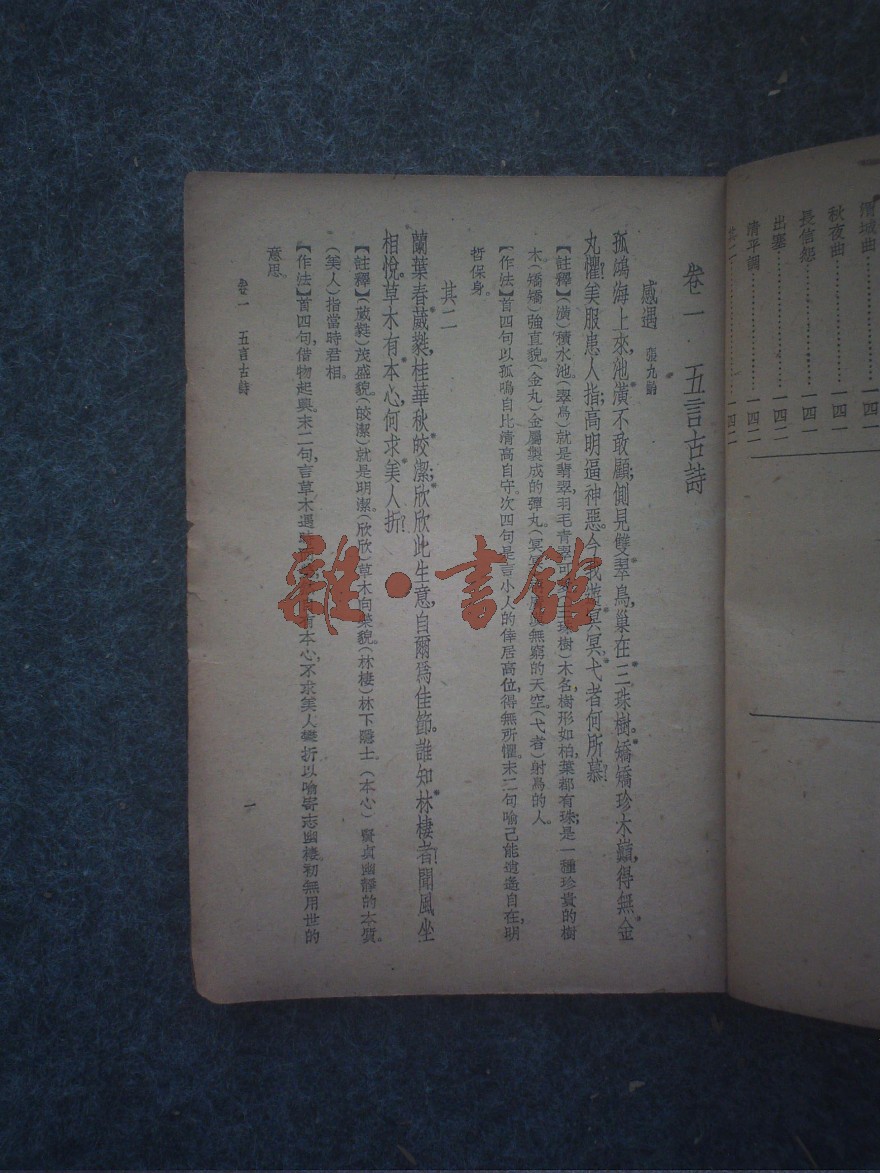 卷一　五言古詩
感遇　張九齡
孤鴻海上來，池潢不敢顧；側見雙翠鳥，巢在三珠樹。矯矯珍木巔，得無金
丸懼！美服患人指；高明逼神惡。今我遊冥冥，弋者何所慕！
【註釋】（潢）積水池。（翠鳥）就是翡翠，羽毛青翠可 三珠樹）木名，樹形如柏，葉都有珠；是一種珍貴的樹
木。（矯矯）強直貌。（金丸）金屬製成的彈丸。（冥冥 無窮的天空。（弋者）射鳥的人。
【作法】首四句以孤鳴自比清高自守，次四句是言小人的倖居高位，得無所懼。末二句喻己能逍遙自在，明
哲保身。
其二
蘭葉春葳蕤，桂華秋皎潔；欣欣此生意，自爾爲佳節。誰知林棲者，聞風坐
相悅。草木有本心，何求美人折！
【註釋】（葳蕤）茂盛貌。（皎潔）就是明潔。（欣欣）草木向榮貌。（林棲）林下隱士。（本心）賢貞幽靜的本質。
（美人）指當時君相。
【作法】首四句，借物起興。末二句，言草木遇 有本心，不求美人攀折，以喻寄志幽棲，初無用世的
意思。
卷一　五言古詩
一
渭城曲
秋夜曲 一四一
長信怨 一四一
出塞 一四二
清平調 一四二
其二 一四二
雜·書館